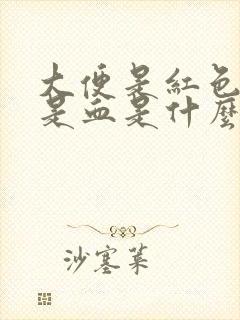 大便是紅色
是血是什麼
沙塞菜